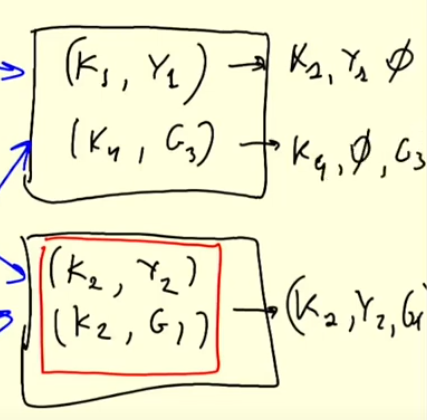 (K₁, Y₁) → K₁, Y₁ ∅
(K₄, G₃) → K₄, ∅, G₃
(K₂, Y₂)
(K₂, G₁) → (K₂, Y₂, G₁